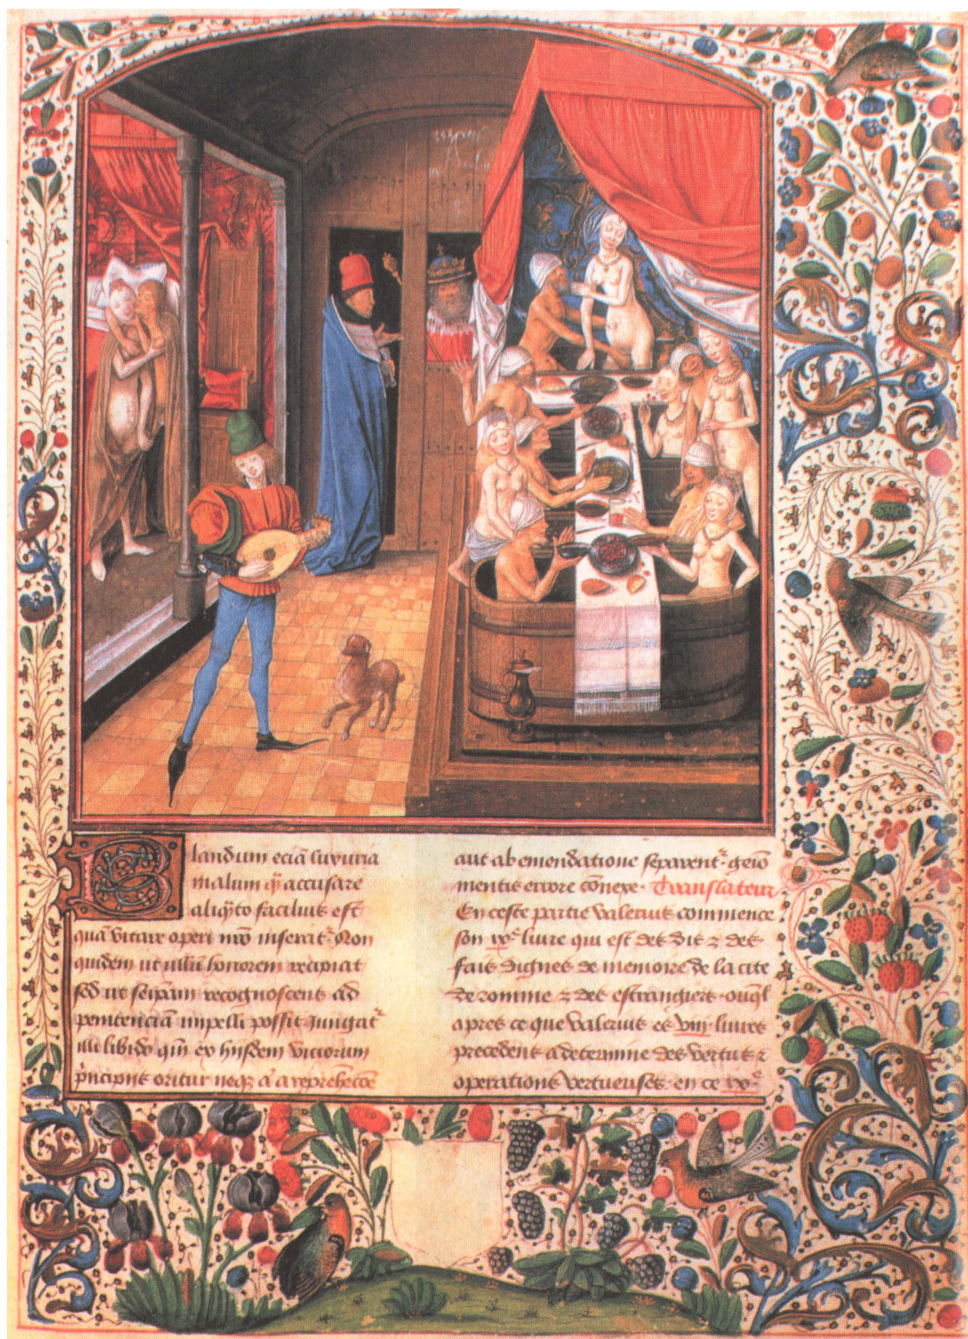 Blandum eciā luxuria
malum q̄ accusare
aliq̄to facilius est
quā vitare operi nr̄o inserat᷑. Non
quidem ut ullū honorem recipiat
sed ut seipām recognoscens ad
penitenciā impelli possit. Iungat᷑
illi libido
oritur neq̄
aut ab emendatione separent᷑.
mentis errore cōnexe. Translateur
En ceste partie Valerius commence
son ix.e livre qui est des dis z des
fais dignes de memoire de la cite
de romme z des estrangiers.
apres ce que Valerius es viii. livres
precedens a determine des vertus z
operations vertueuses. en ce ix.e